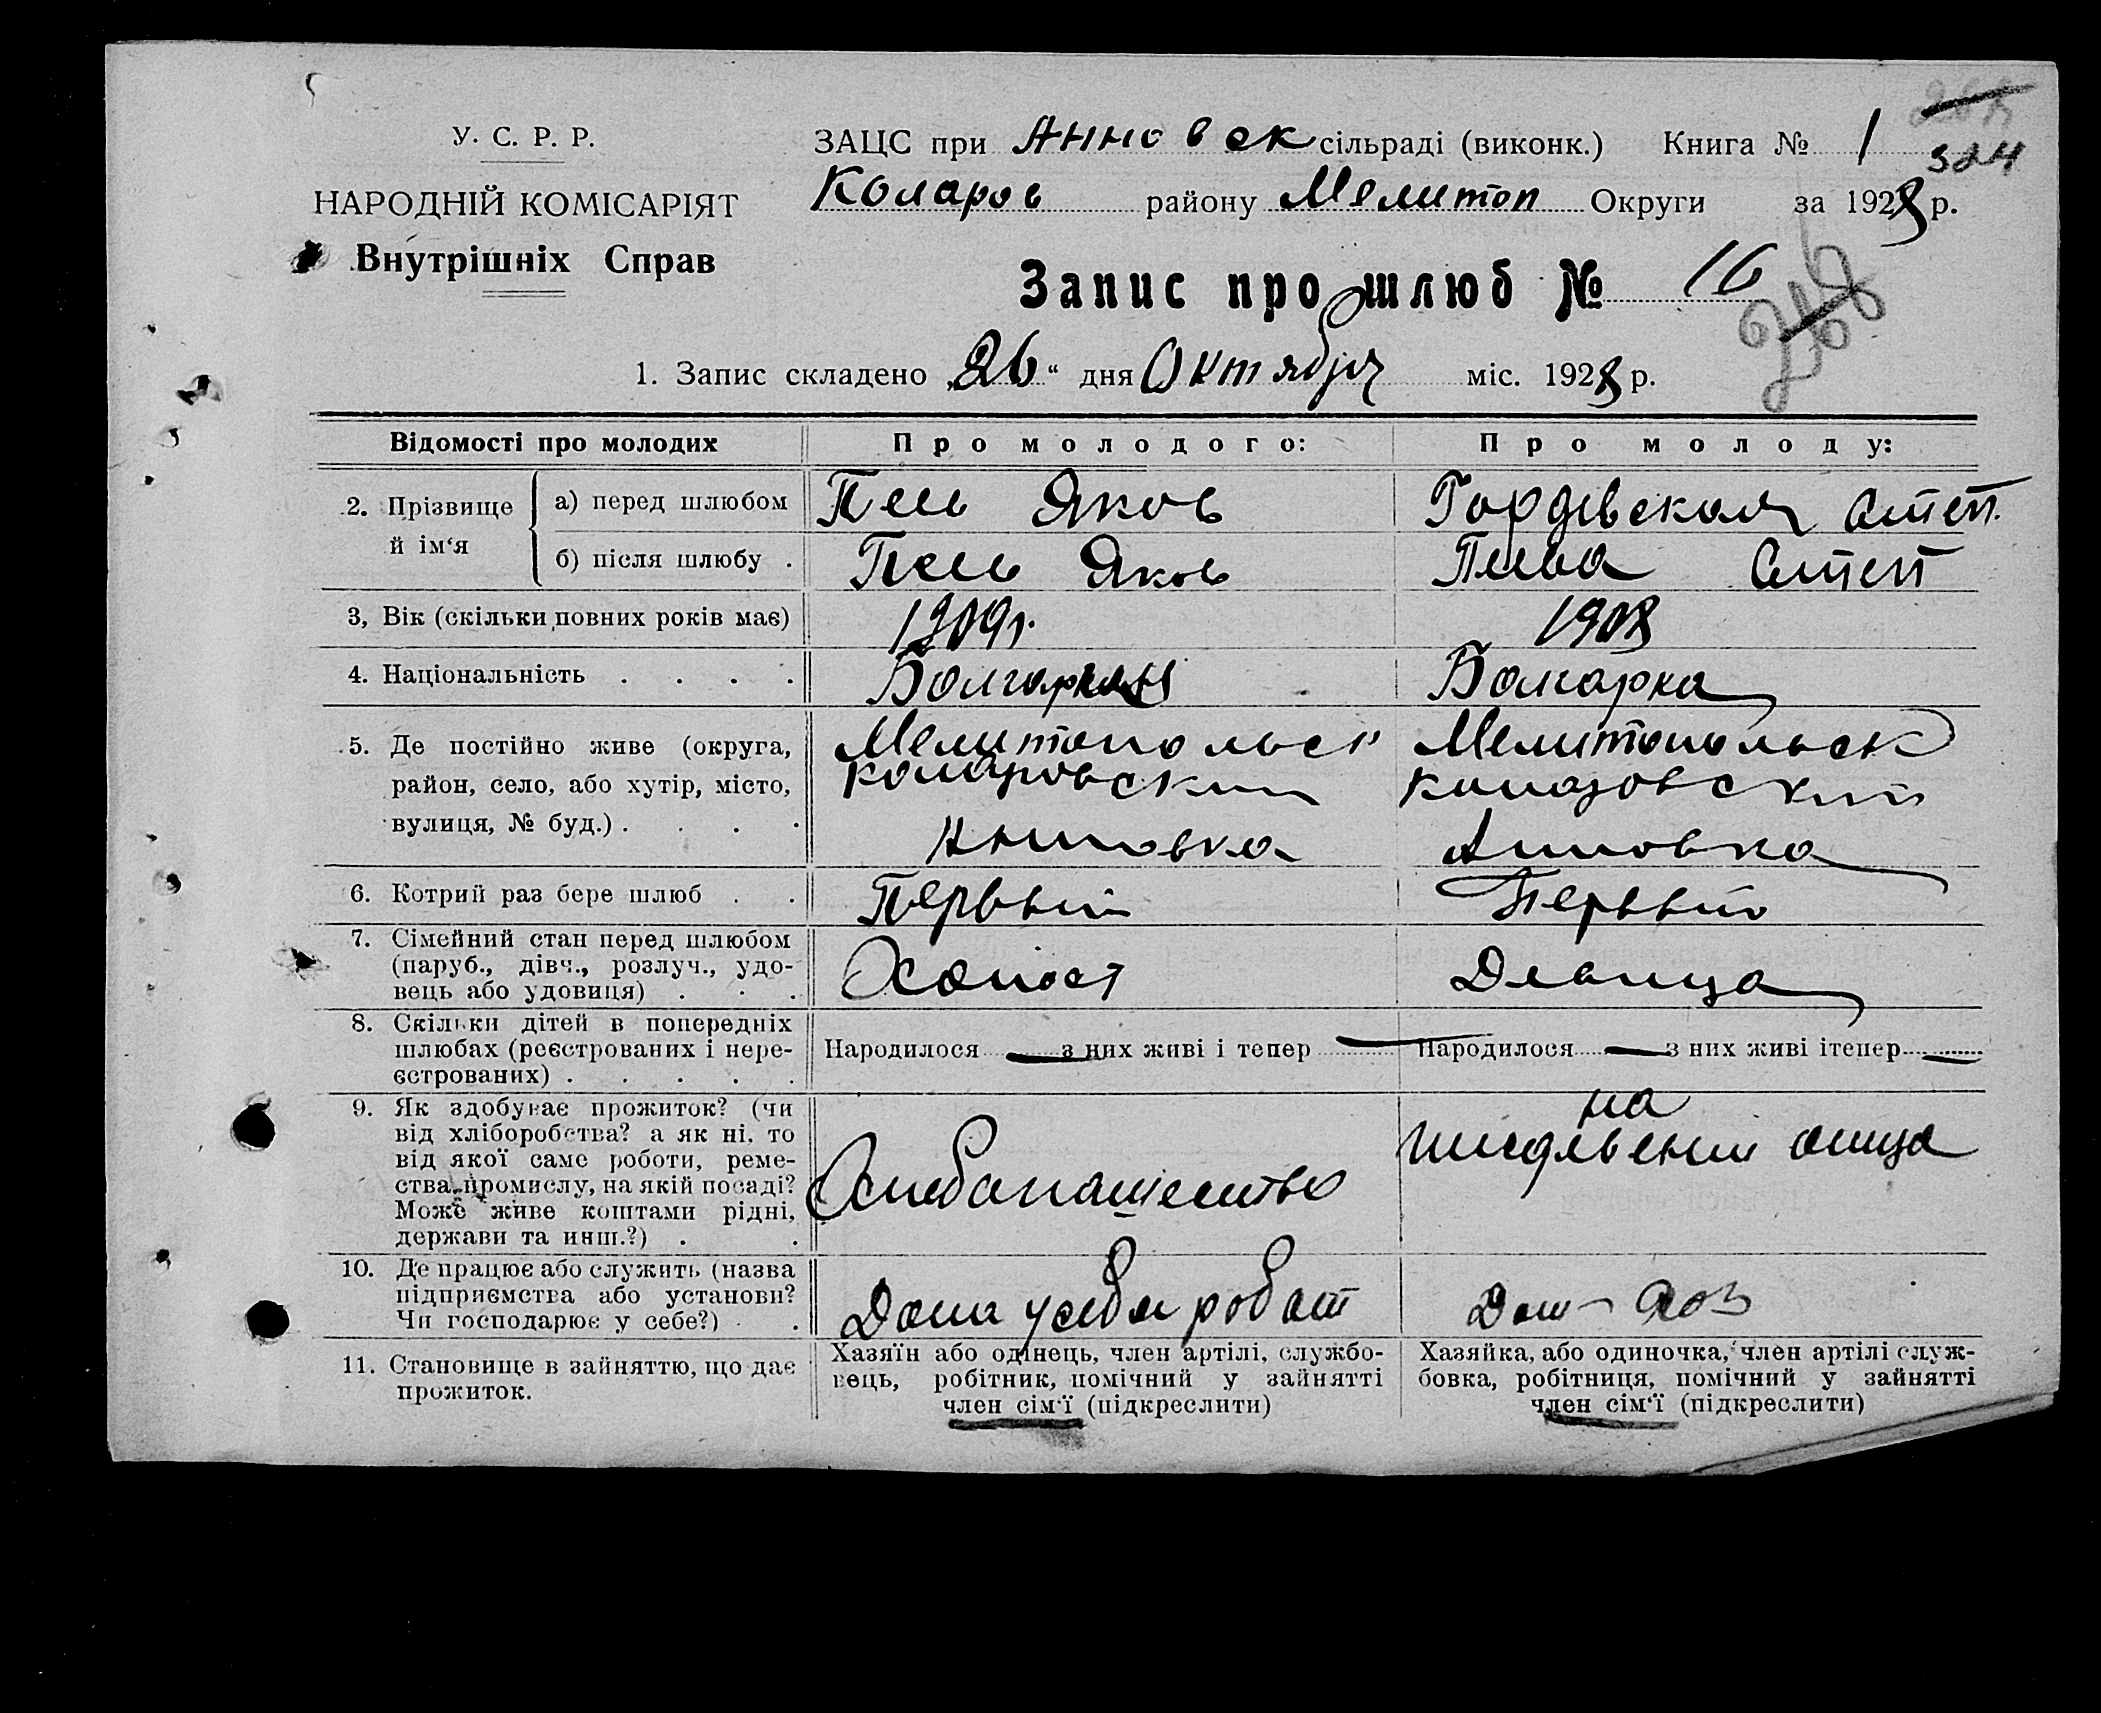 У. С. Р. Р.
НАРОДНІЙ КОМІСАРІЯТ
Внутрішніх Справ
ЗАЦС при Анновск сільраді (виконк.) Книга № 1
324
Коларов району Мелитоп Округи за 1928 р.
Запис про шлюб № 16
1. Запис складено „26“ дня Октября міс. 1928 р.
Відомості про молодих Про молодого: Про молоду:
2. Прізвище й ім‘я
а) перед шлюбом Яков Степ.
б) після шлюбу . Яков Степ
3, Вік (скільки повних років має) 1909г. 1908
4. Національність . . . . Болгарин Болгарка
5. Де постійно живе (округа, Мелитопольск Мелитопольск
район, село, або хутір, місто, Коларовский Коларовский
вулиця, № буд.) . . . . Анновка Анновка
6. Котрий раз бере шлюб . . Первый Первый
7. Сімейний стан перед шлюбом
(паруб., дівч., розлуч., удо-
вець або удовиця) . . . Холост Девица
8. Скільки дітей в попередніх
шлюбах (реєстрованих і нере-
єстрованих) . . . . .
Народилося — з них живі і тепер — Народилося — з них живі ітепер —
9. Як здобуває прожиток? (чи
від хліборобства? а як ні, то
від якої саме роботи, реме-
ства, промислу, на якій посаді?
Може живе коштами рідні,
держави та инш.?) . .
Хлебопашество
на
иждевении отца
10. Де працює або служить (назва
підприємства або установи?
Чи господарює у себе?) . .
Дома у себя работ Дом - хоз
11. Становище в зайняттю, що дає
прожиток.
Хазяїн або одінець, член артілі, службо-
вець, робітник, помічний у зайнятті
член сім‘ї (підкреслити)
Хазяйка, або одиночка, член артілі служ-
бовка, робітниця, помічний у зайнятті
член сім‘ї (підкреслити)